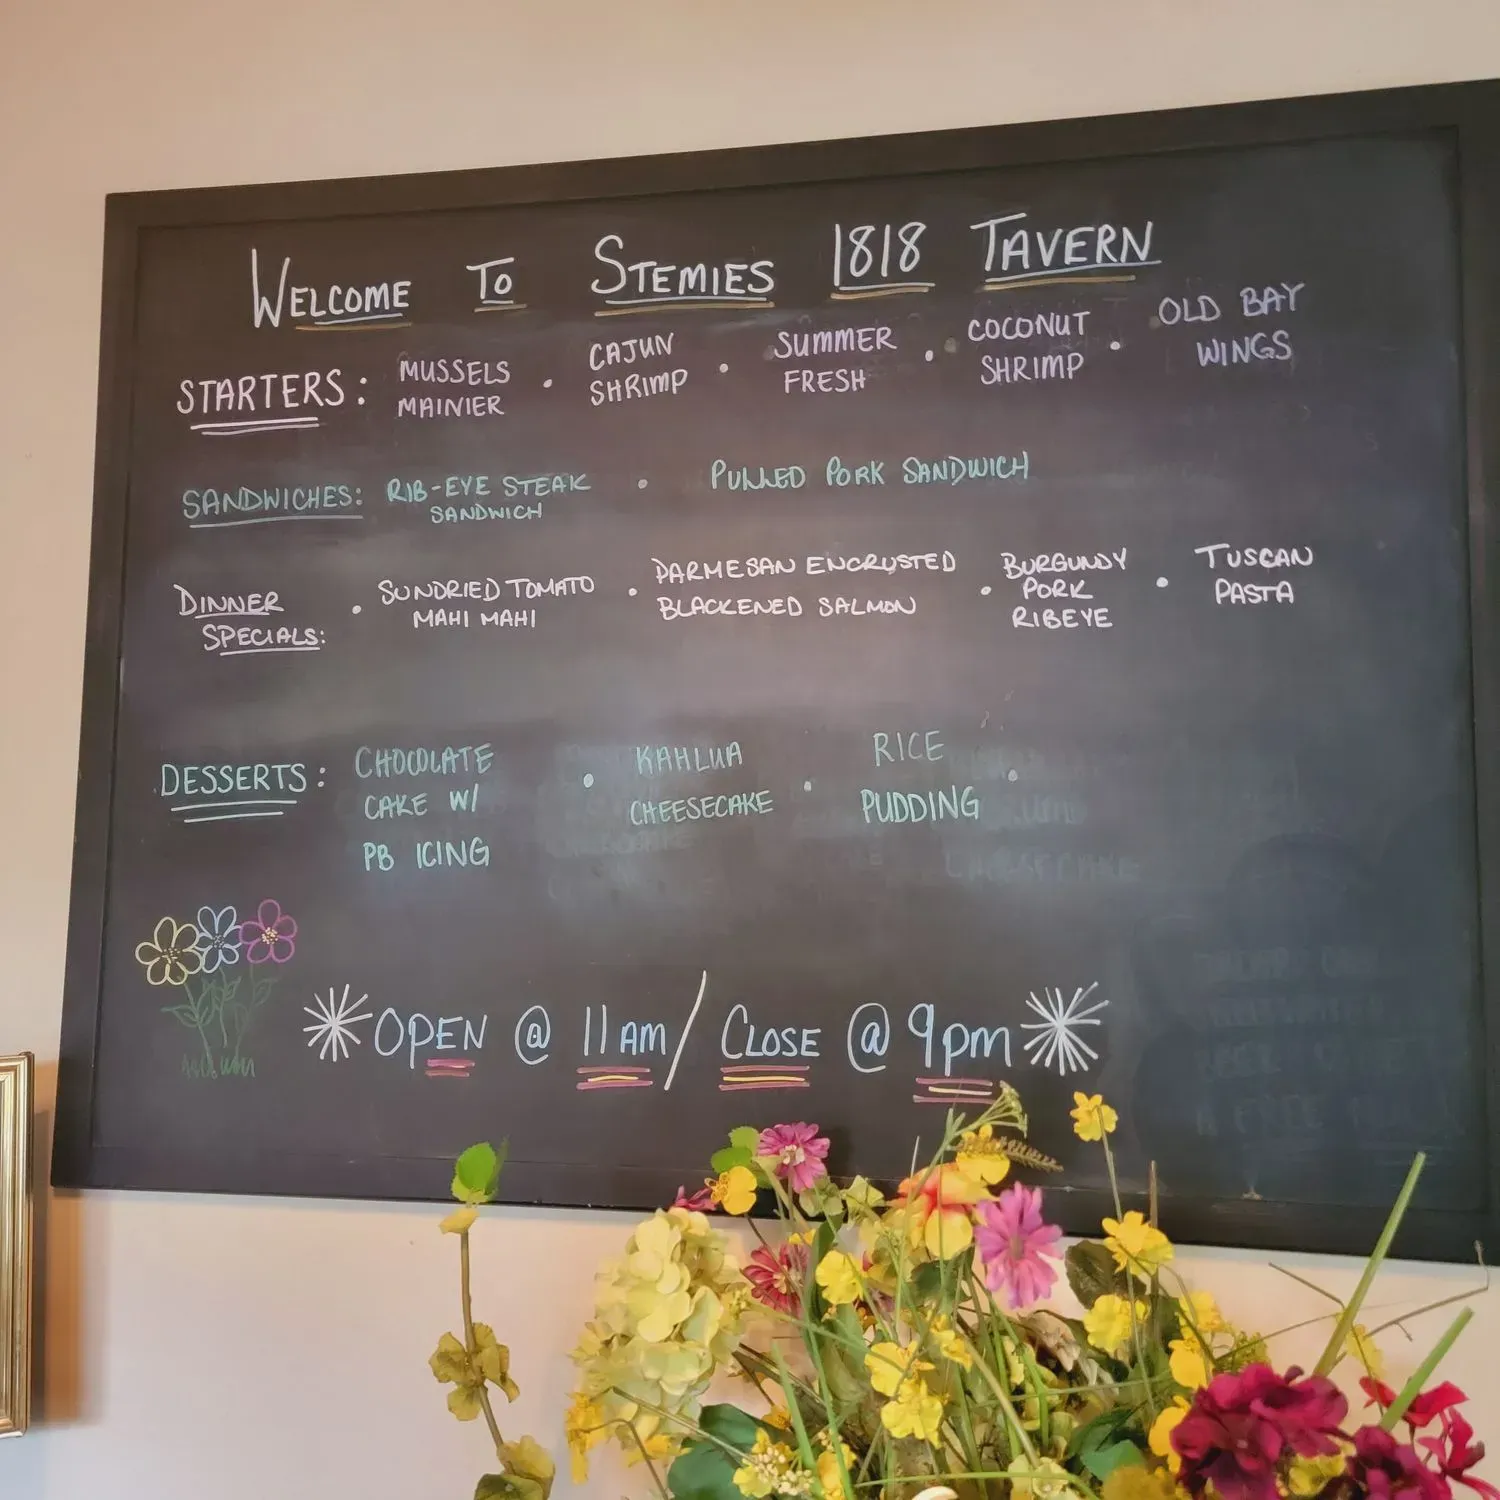 WELCOME TO STEMIES 1818 TAVERN
STARTERS: MUSSELS MAINIER • CAJUN SHRIMP • SUMMER FRESH • COCONUT SHRIMP • OLD BAY WINGS
SANDWICHES: RIB-EYE STEAK SANDWICH • PULLED PORK SANDWICH
DINNER SPECIALS: • SUNDRIED TOMATO MAHI MAHI • PARMESAN ENCRUSTED BLACKENED SALMON • BURGUNDY PORK RIBEYE • TUSCAN PASTA
DESSERTS: CHOCOLATE CAKE W/ PB ICING • KAHLUA CHEESECAKE • RICE PUDDING •
OPEN @ 11AM / CLOSE @ 9pm